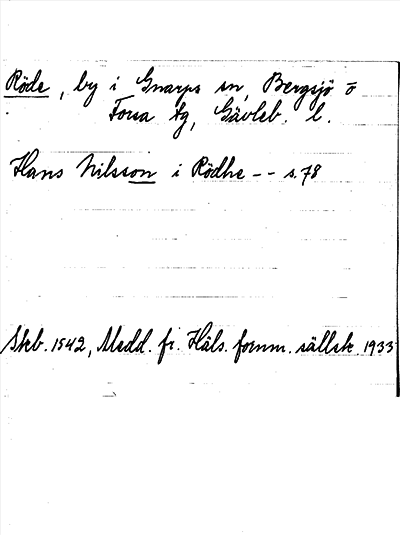 Röde, by i Gnarps sn, Bergsjö o
Forsa tg, Gävleb. l.
Hans Nilsson i Rödhe -- s.78
Skb. 1542, Medd. fr. Häls. fornm. sällsk. 1933